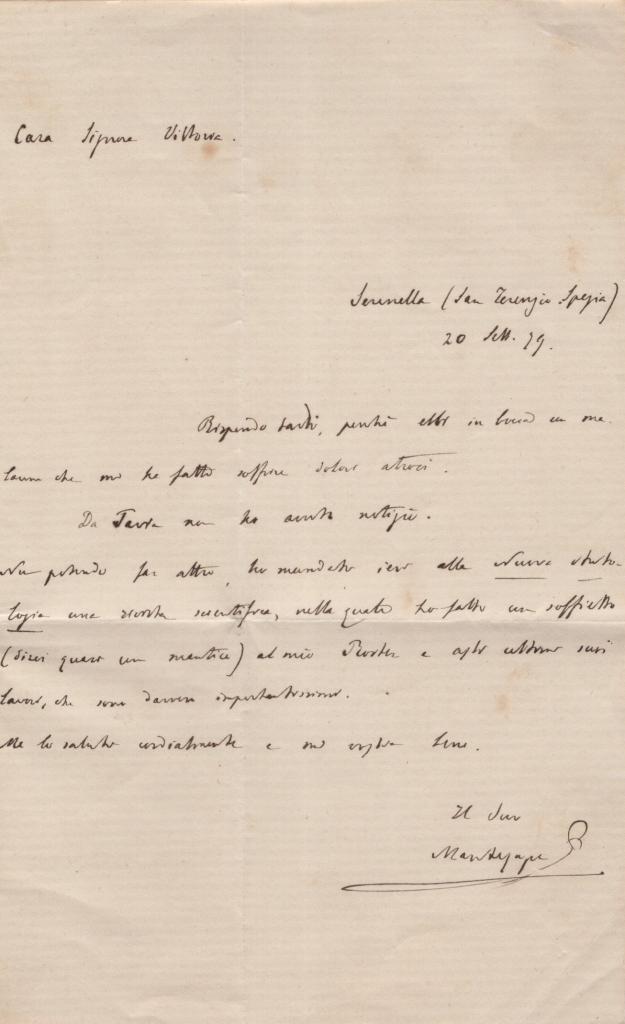 Cara Signora Vittoria.
Serenella (San Terenzio Spezia)
20 Sett. 79.
Rispondo tardi, perchè ebbi in bocca un ma-
lanno che mi ha fatto soffrire dolori atroci.
Da non ho avuto notizie.
Non potendo far altro, ho mandato ieri alla Nuova Antolo-
logia una rivista scientifica, nella quale ho fatto un soffietto
(direi quasi un mantice) al mio e agli ultimi suoi
lavori, che sono davvero importantissimi.
Me lo saluti cordialmente e mi creda sempre.
Il Suo
Mantegazza